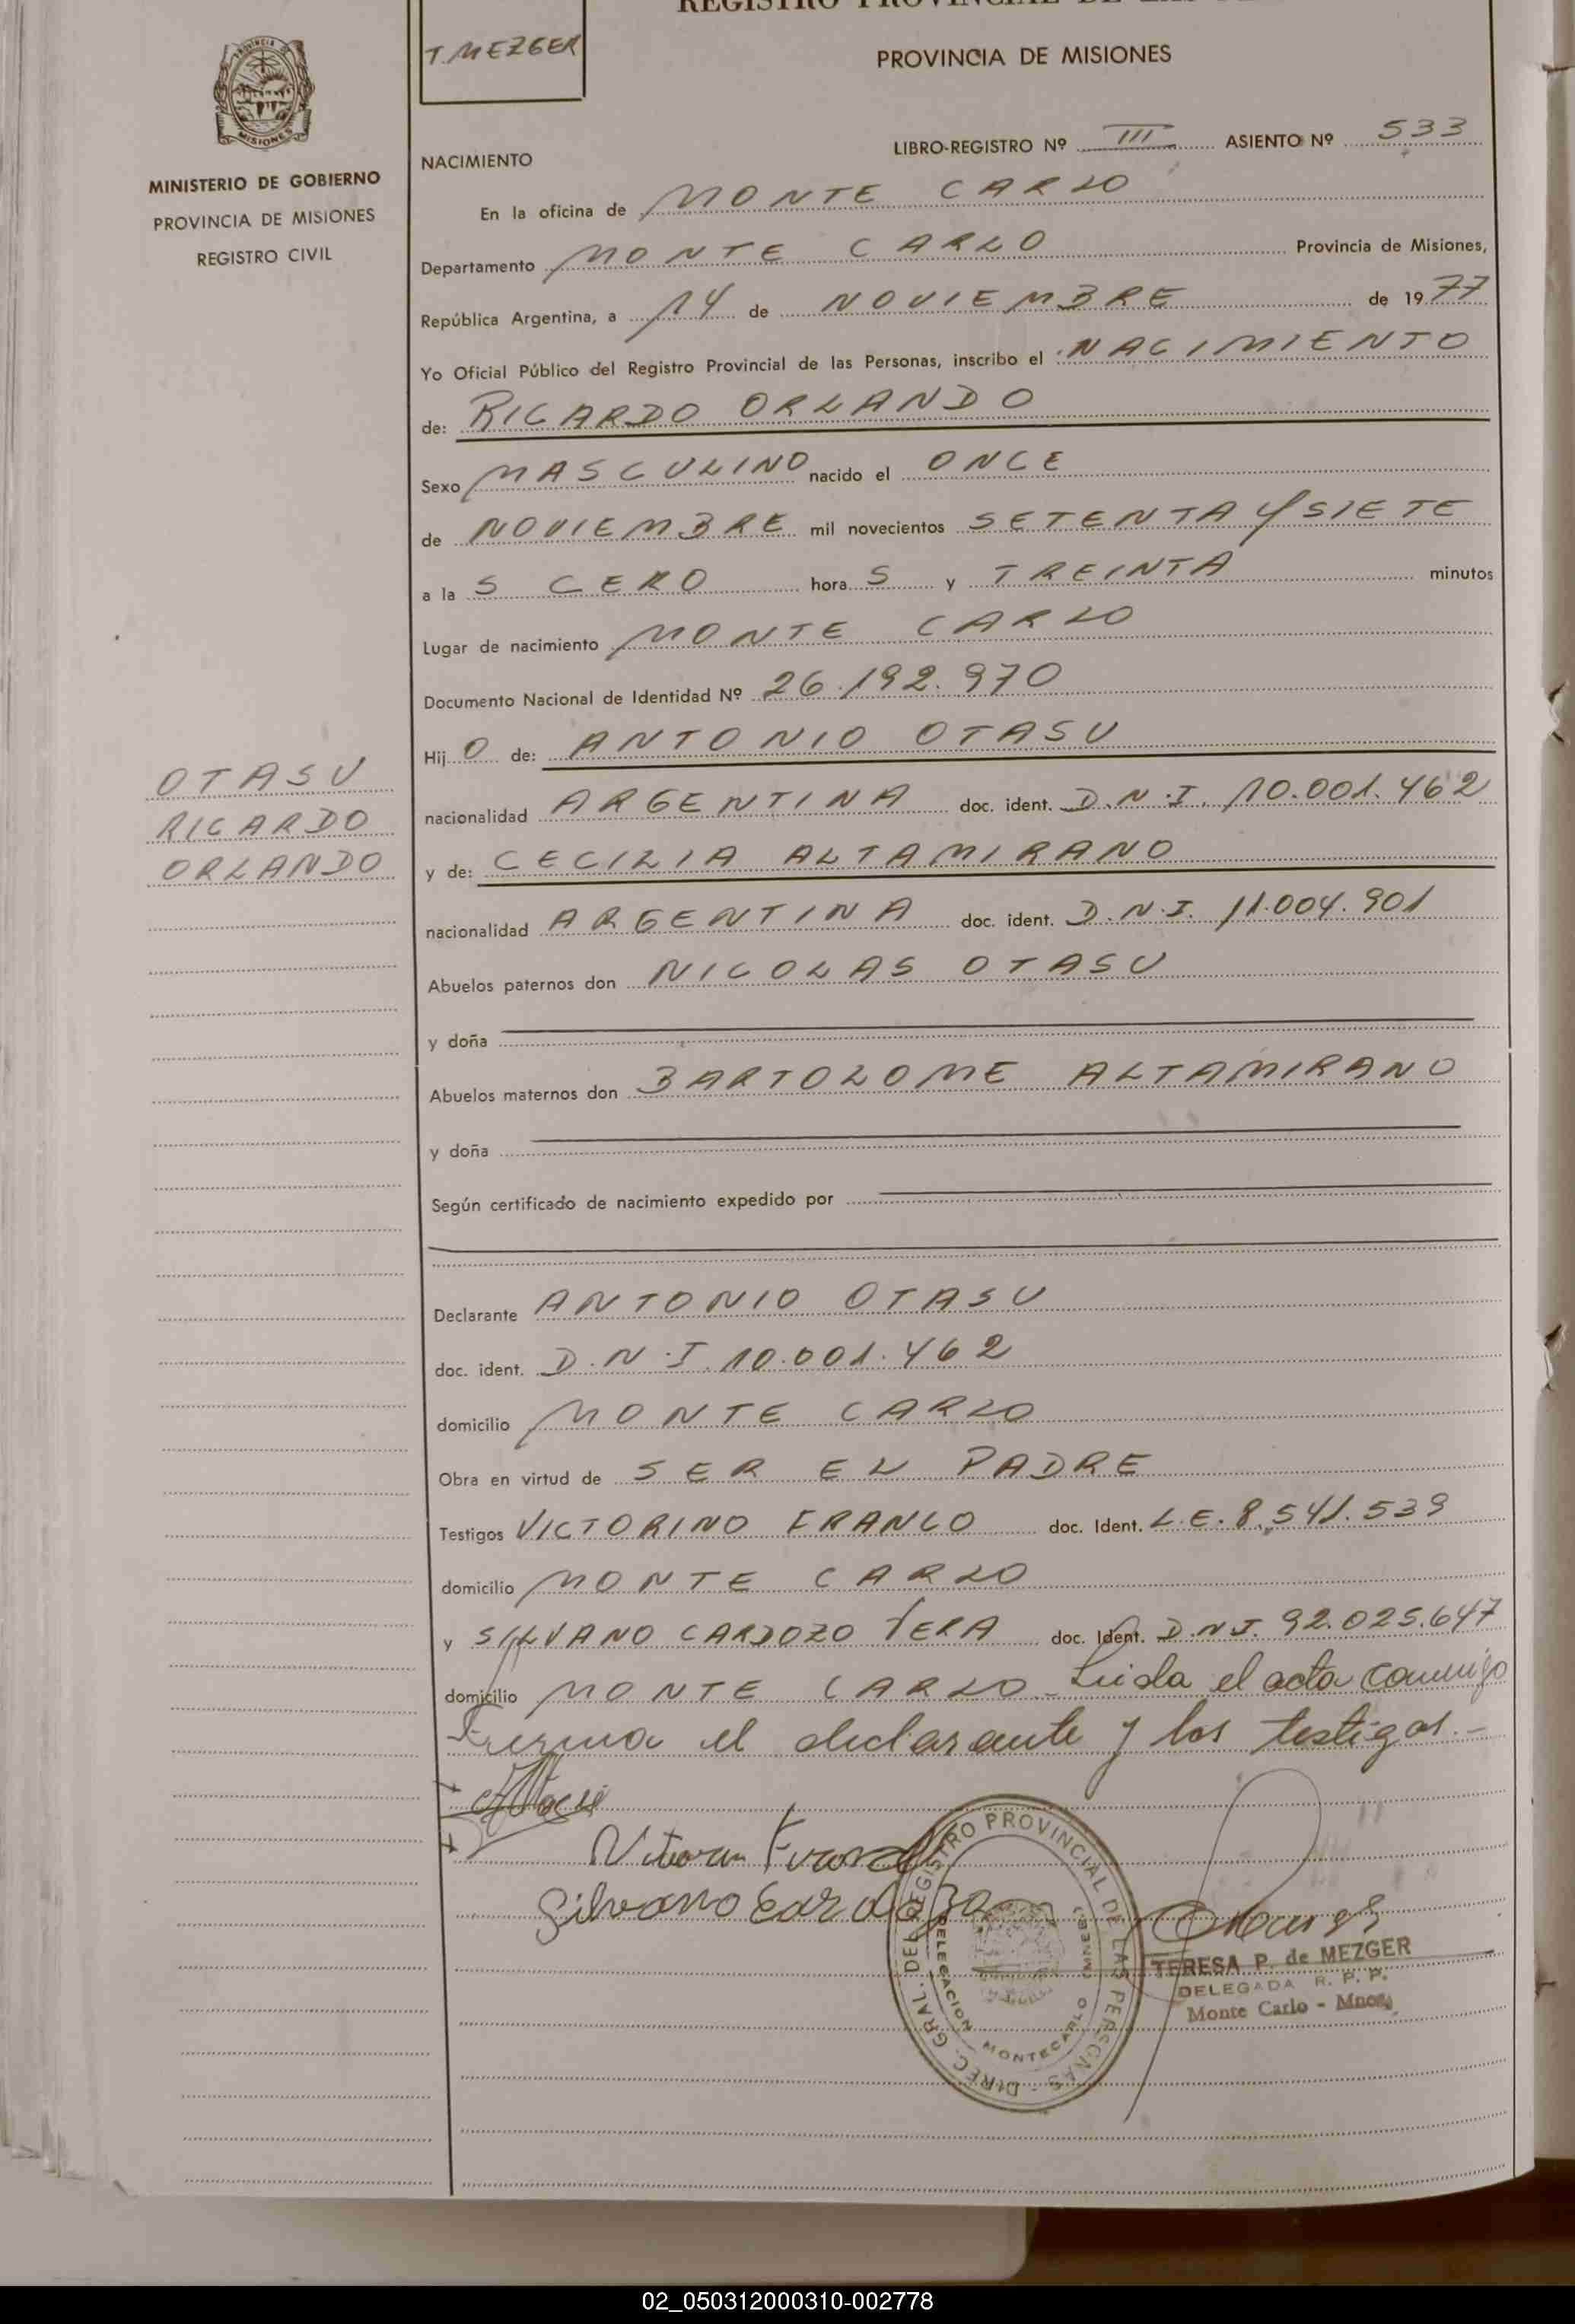 T. MEZGER
PROVINCIA DE MISIONES
LIBRO-REGISTRO Nº III ASIENTO Nº 533
MINISTERIO DE GOBIERNO
PROVINCIA DE MISIONES
REGISTRO CIVIL
NACIMIENTO
En la oficina de MONTE CARLO
Departamento MONTE CARLO Provincia de Misiones,
República Argentina, a 14 de NOVIEMBRE de 1977
Yo Oficial Público del Registro Provincial de las Personas, inscribo el NACIMIENTO
de: RICARDO ORLANDO
Sexo MASCULINO nacido el ONCE
de NOVIEMBRE mil novecientos SETENTA Y SIETE
a la S CERO hora S y TREINTA minutos
Lugar de nacimiento MONTE CARLO
Documento Nacional de Identidad Nº 26.192.970
Hij O de: ANTONIO OTASU
OTASU
RICARDO
ORLANDO
nacionalidad ARGENTINA doc. ident. D.N.I. 10.001.462
y de: CECILIA ALTAMIRANO
nacionalidad ARGENTINA doc. ident. D.N.I. 11.004.901
Abuelos paternos don NICOLAS OTASU
y doña
Abuelos maternos don BARTOLOME ALTAMIRANO
y doña
Según certificado de nacimiento expedido por
Declarante ANTONIO OTASU
doc. ident. D.N.I. 10.001.462
domicilio MONTE CARLO
Obra en virtud de SER EL PADRE
Testigos VICTORINO FRANCO doc. Ident. L.E. 8.541.539
domicilio MONTE CARLO
y SILVANO CARDOZO VERA doc. Ident. D.N.I. 92.025.647
domicilio MONTE CARLO - Leida el acta conmigo
firma el declarante y los testigos.-
Silvano Cardozo
DIREC. GRAL. DEL REGISTRO PROVINCIAL DE LAS PERSONAS
DELEGACION MONTECARLO (MNES.)
TERESA P. de MEZGER
DELEGADA R. P. P.
Monte Carlo - Mnes.
02_050312000310-002778